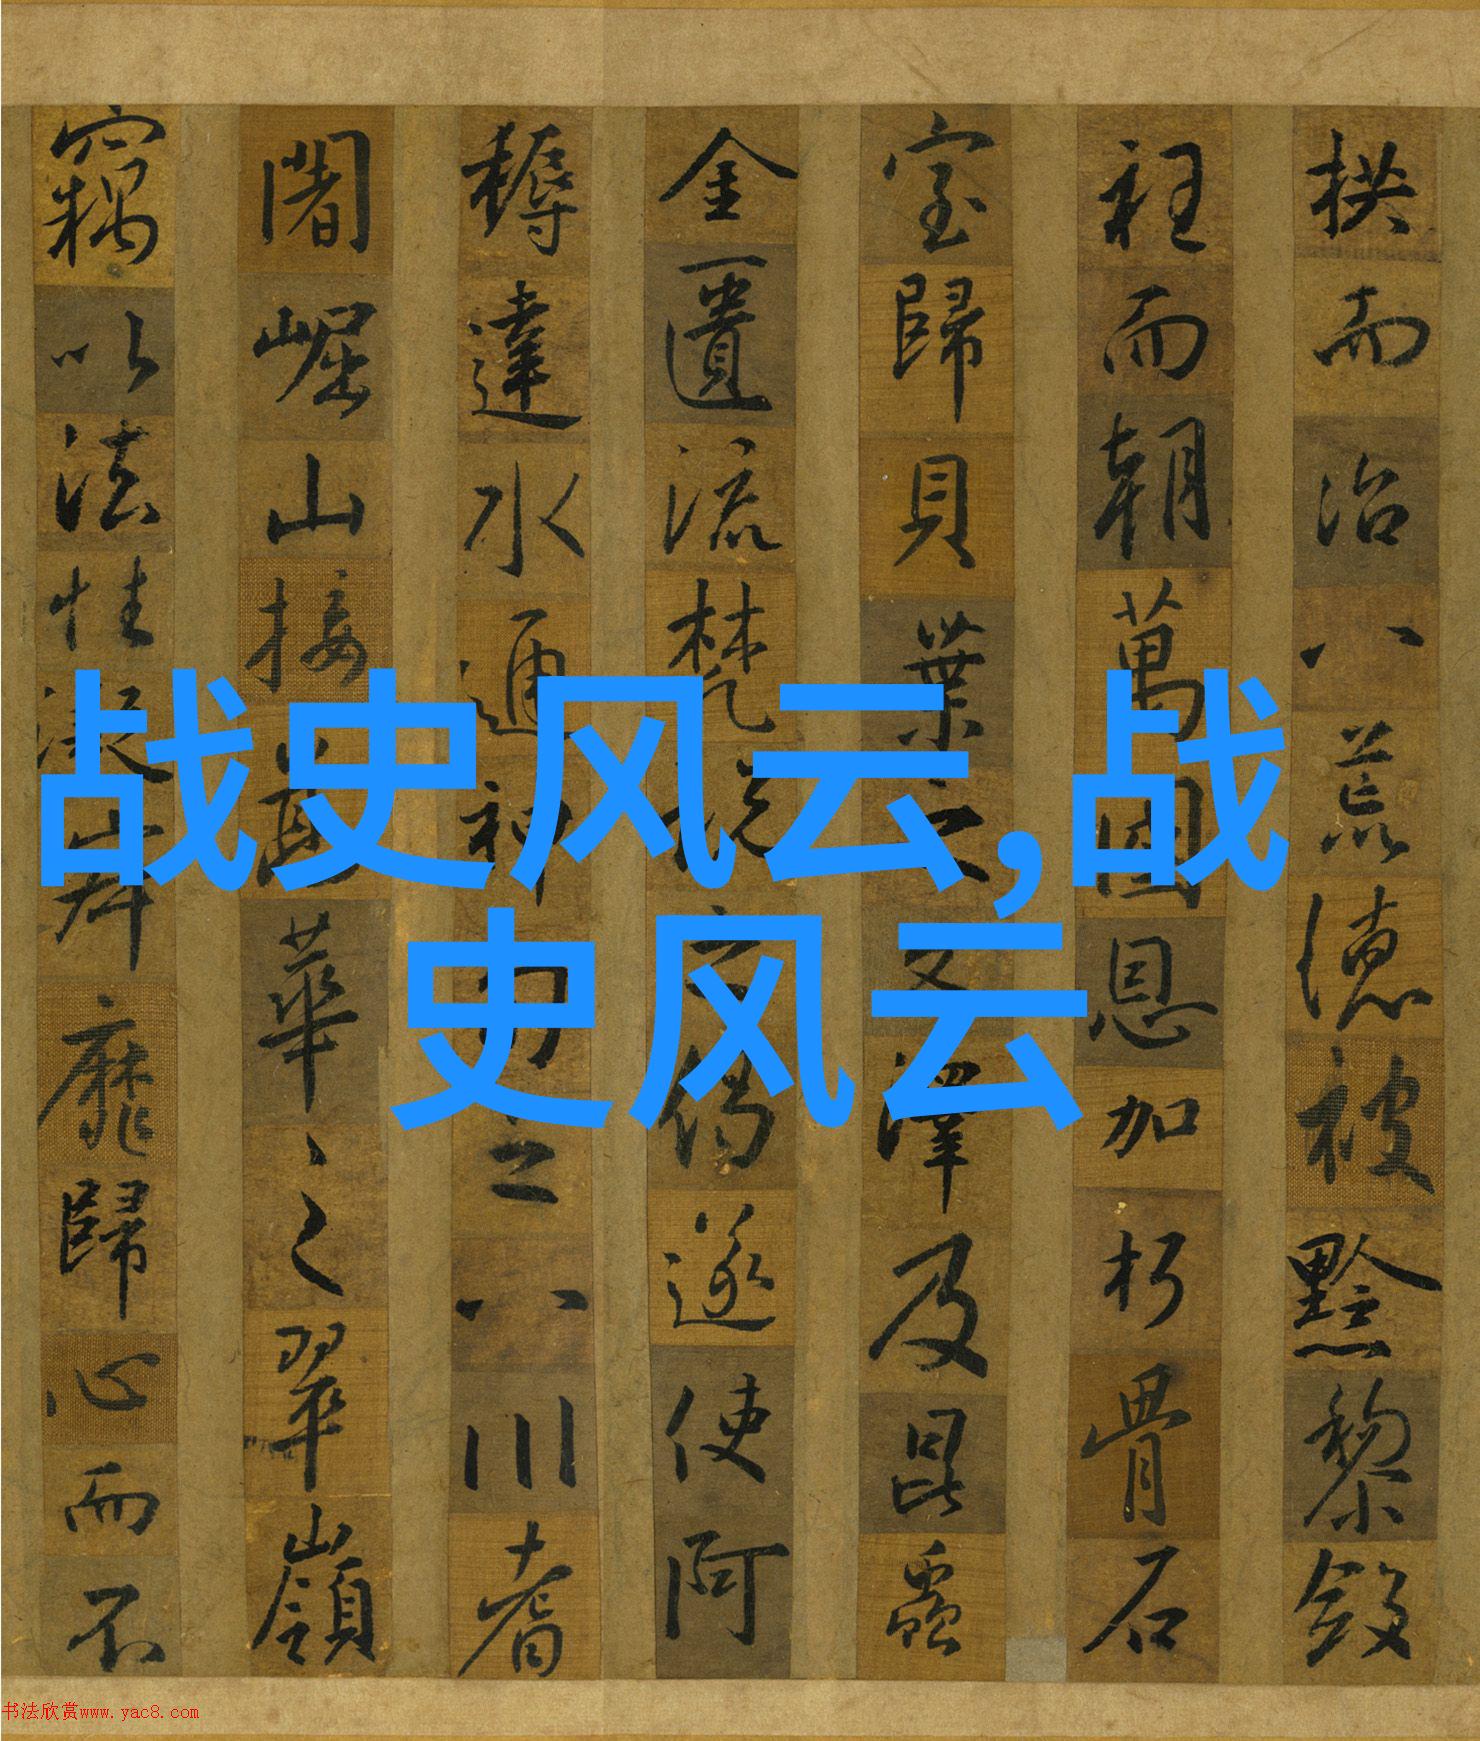 战史风云,战
史风云
拱而治八荒德被黔黎斂
衽而朝萬國恩加朽骨石
室歸貝葉之文澤及昆蟲
金匱流梵說之偈遂使阿
耨達水通神甸之八川耆
闍崛山接嵩華之翠嶺
竊以法性凝寂靡歸心而不
书法欣赏www.yac8.com